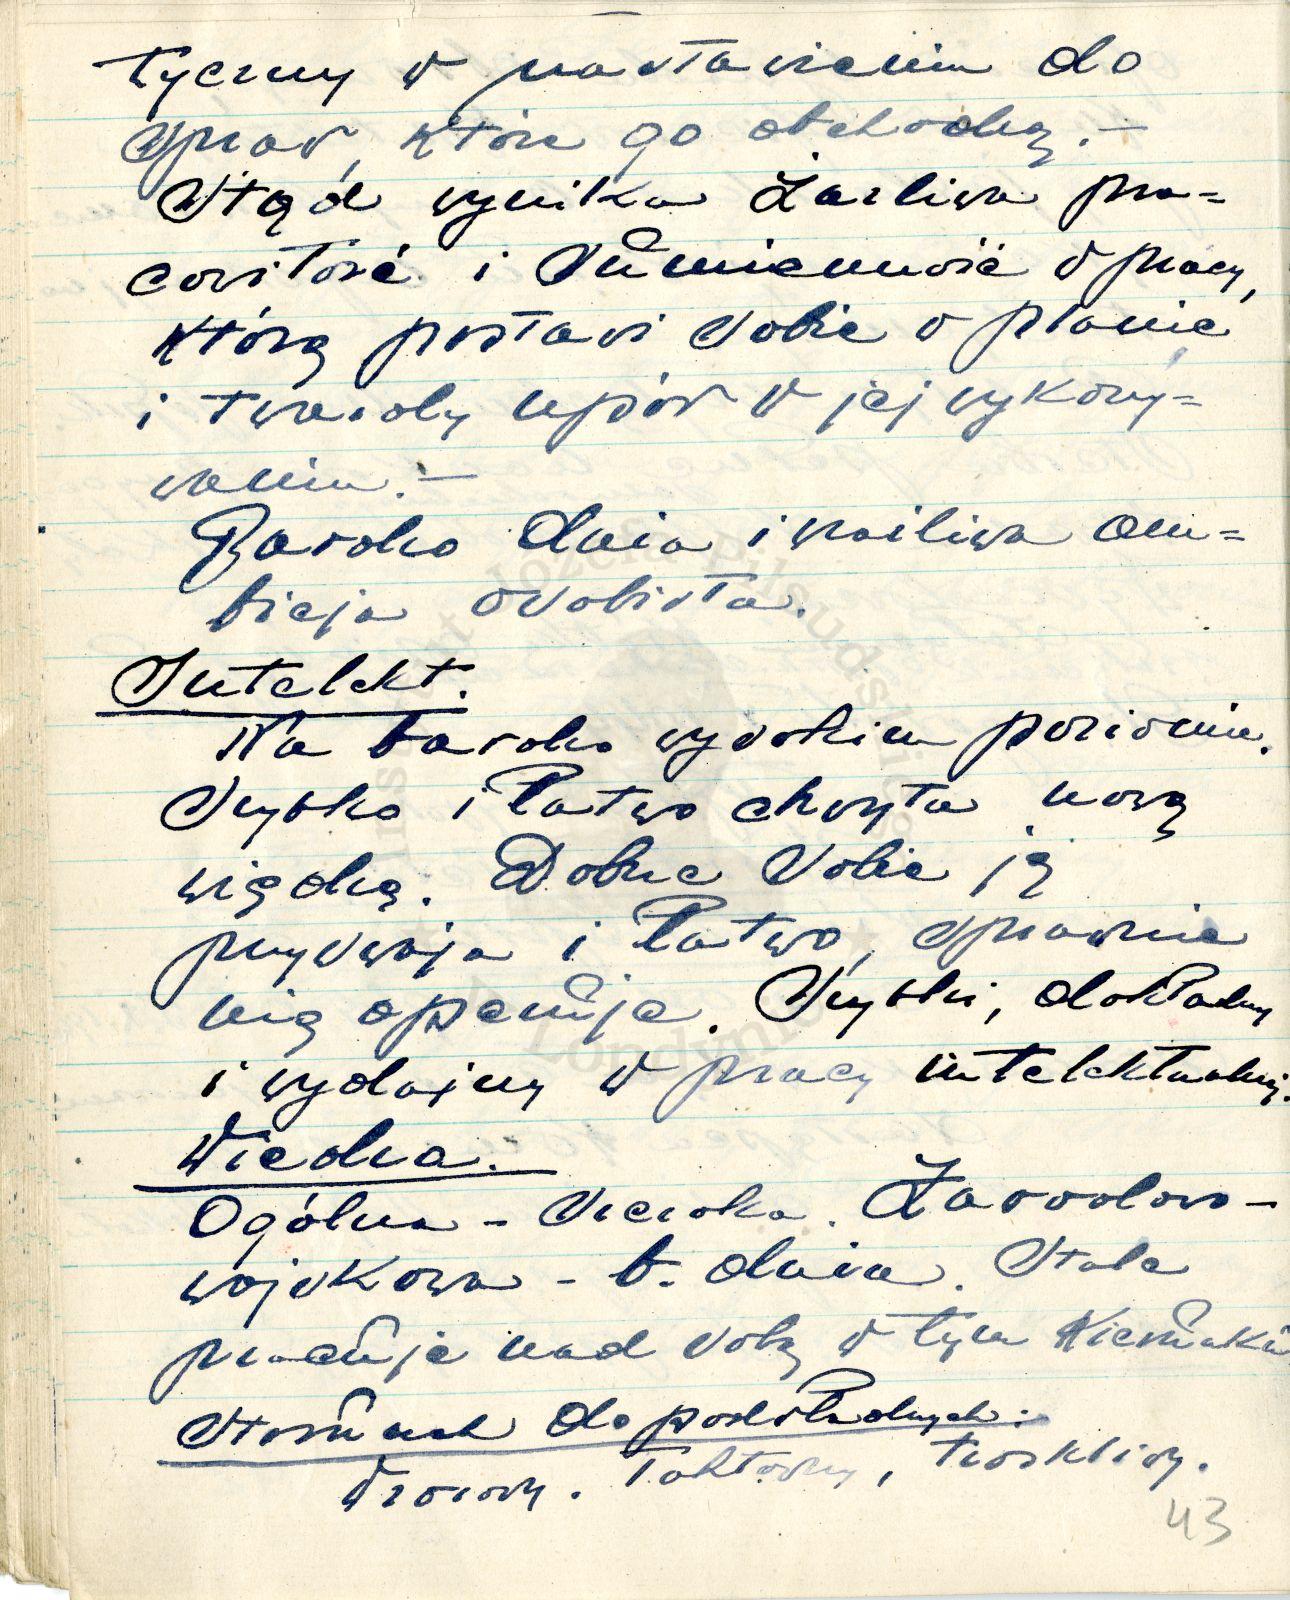 tyczny w nastawieniu do
spraw, które go obchodzą.—
Stąd wynika żarliwa pra=
cowitość i sumienność w pracy,
którą postawi sobie w planie
i twardy upór w jej wykony=
waniu.—
Bardzo duża i wrażliwa am=
bicja osobista.
Intelekt.
Na bardzo wysokim poziomie.
Szybko i łatwo chwyta nową
wiedzę. Dobrze sobie ją
przyswaja i łatwo, sprawnie
nią operuje. Szybki, dokładny
i wydajny w pracy intelektualnej.
Wiedza.
Ogólna – szeroka. Zawodowo –
wojskowa – b. duża. Stale
pracuje nad sobą w tym kierunku
Stosunek do podwładnych:
Wzorowy. Taktowny, troskliwy.
43
Instytut Józefa Piłsudskiego
w Londynie